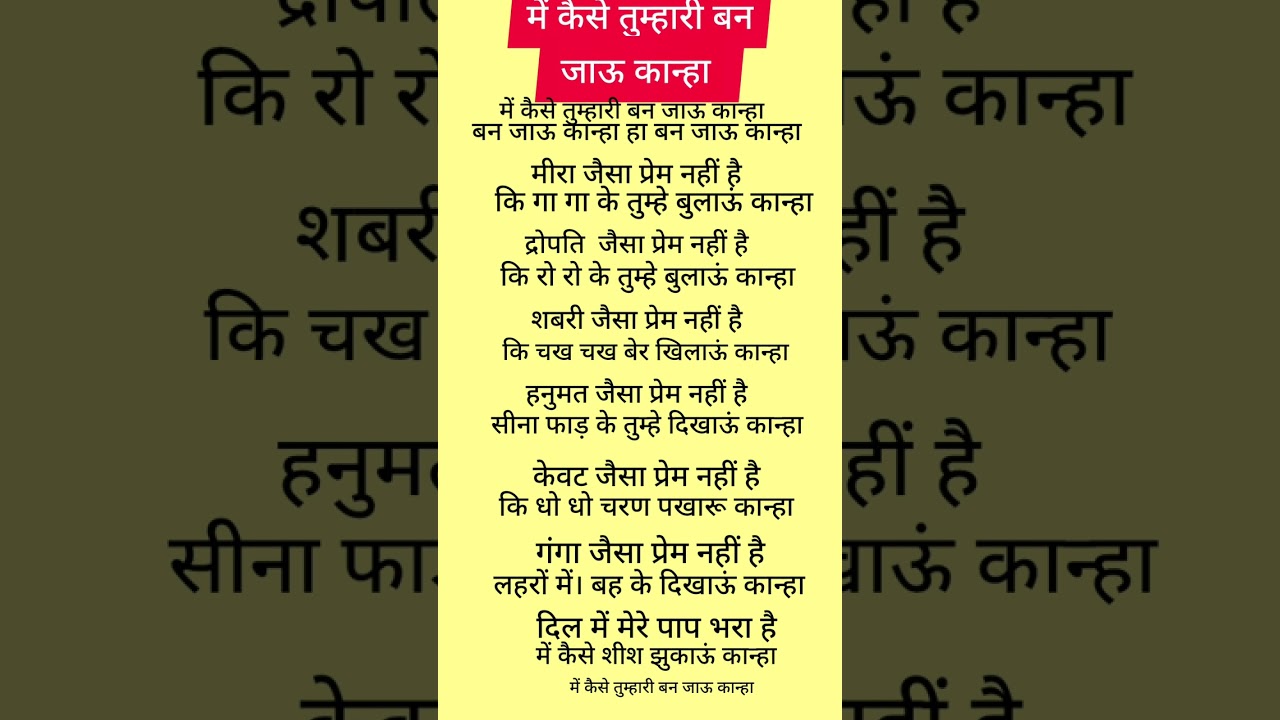 में कैसे तुम्हारी बन
जाऊ कान्हा
में कैसे तुम्हारी बन जाऊ कान्हा
बन जाऊ कान्हा हा बन जाऊ कान्हा
मीरा जैसा प्रेम नहीं है
कि गा गा के तुम्हे बुलाऊं कान्हा
द्रोपति जैसा प्रेम नहीं है
कि रो रो के तुम्हे बुलाऊं कान्हा
शबरी जैसा प्रेम नहीं है
कि चख चख बेर खिलाऊं कान्हा
हनुमत जैसा प्रेम नहीं है
सीना फाड़ के तुम्हे दिखाऊं कान्हा
केवट जैसा प्रेम नहीं है
कि धो धो चरण पखारू कान्हा
गंगा जैसा प्रेम नहीं है
लहरों में। बह के दिखाऊं कान्हा
दिल में मेरे पाप भरा है
में कैसे शीश झुकाऊं कान्हा
में कैसे तुम्हारी बन जाऊ कान्हा